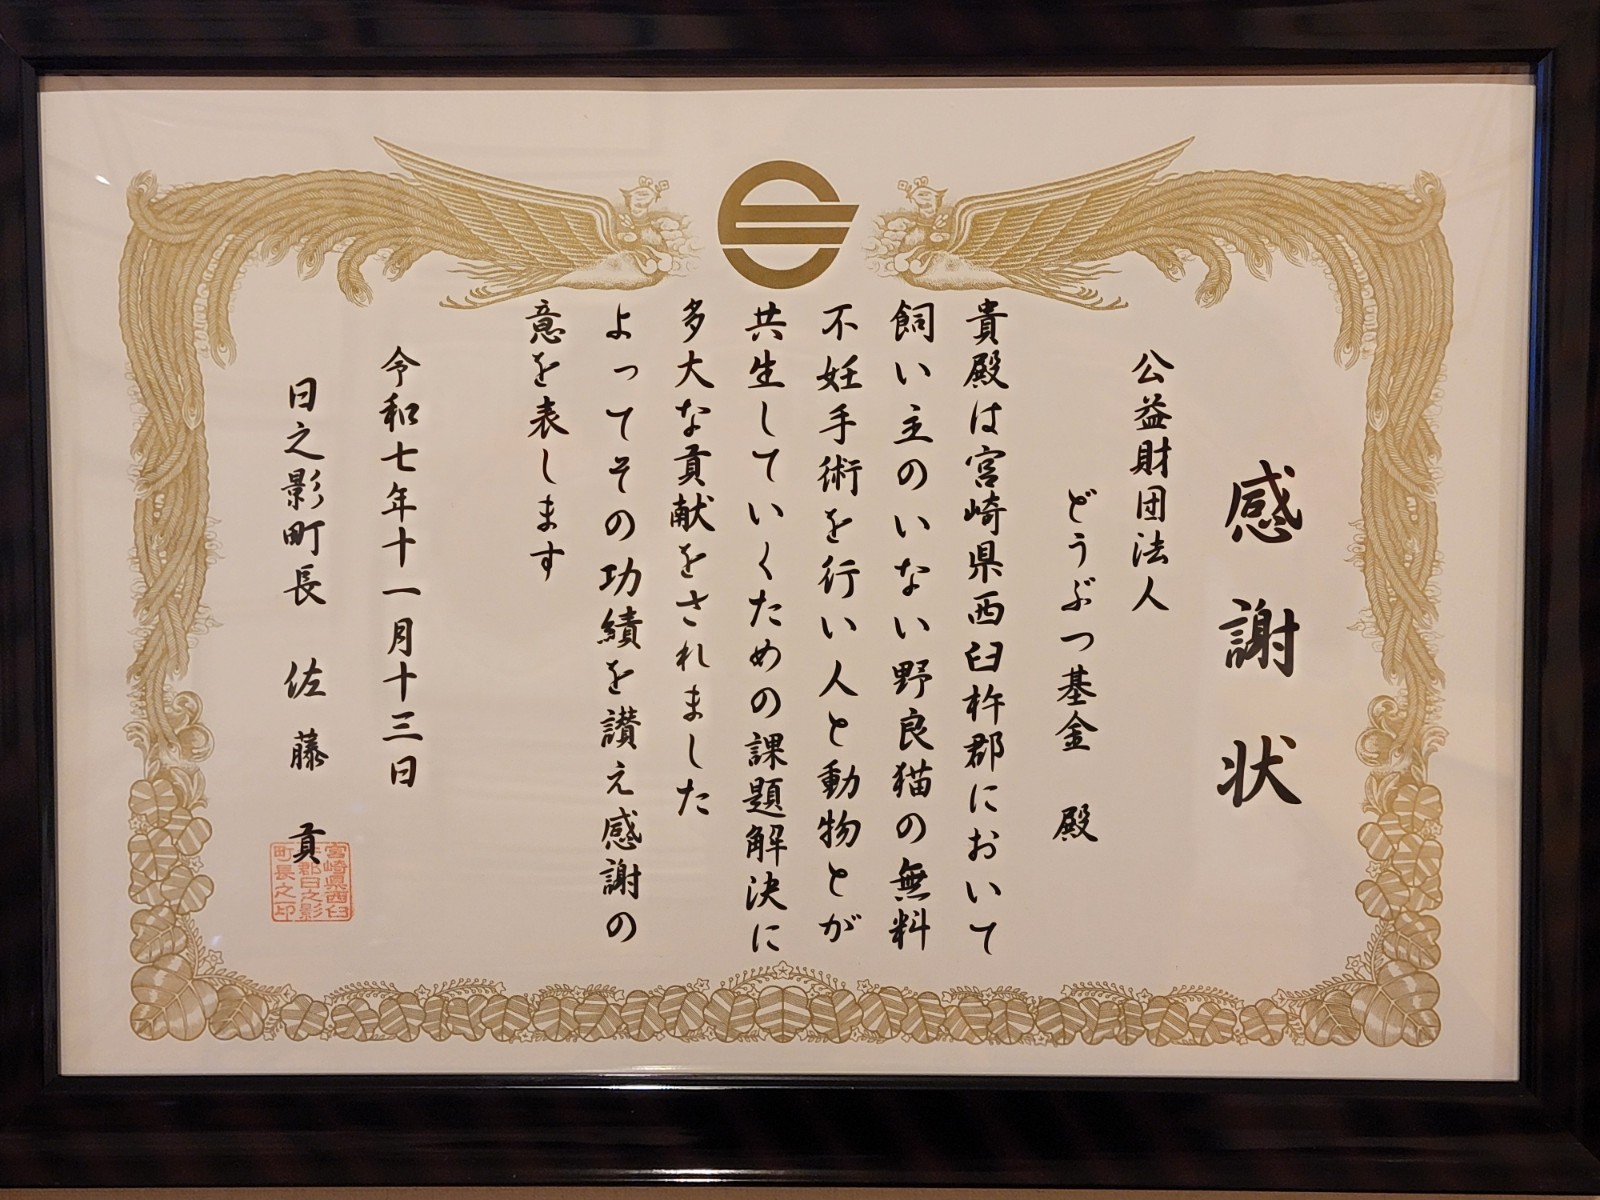 感謝状
公益財団法人
どうぶつ基金 殿
貴殿は宮崎県西臼杵郡において
飼い主のいない野良猫の無料
不妊手術を行い人と動物とが
共生していくための課題解決に
多大な貢献をされました
よってその功績を讃え感謝の
意を表します
令和七年十一月十三日
日之影町長 佐藤 貢
宮崎県西臼
杵郡日之影
町長之印